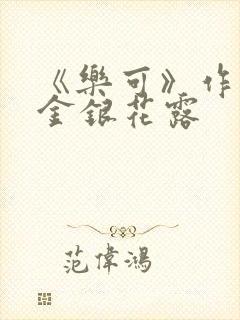 《樂可》作
金銀花露
范偉鴻